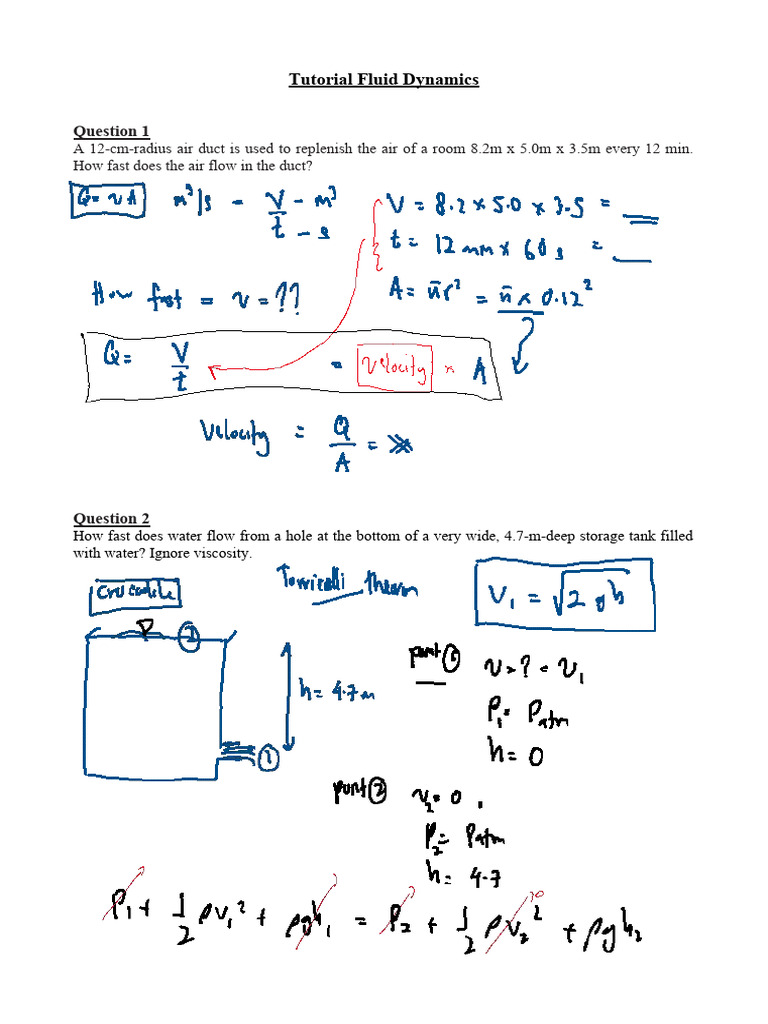 Tutorial Fluid Dynamics
Question 1
A 12-cm-radius air duct is used to replenish the air of a room 8.2m x 5.0m x 3.5m every 12 min.
How fast does the air flow in the duct?
Q = v A m³/s = V - m³
t - s
V = 8.2 x 5.0 x 3.5 = __
t = 12 min x 60 s = __
A = πr² = π x 0.12²
How fast = v = ??
Q = V/t = velocity x A
Velocity = Q/A =
Question 2
How fast does water flow from a hole at the bottom of a very wide, 4.7-m-deep storage tank filled
with water? Ignore viscosity.
Torricelli theorem
V₁ = √2gh
②
h = 4.7 m
①
point ① v = ? = v₁
P₁ = Patm
h = 0
point ② v₂ = 0
P₂ = Patm
h = 4.7
P₁ + 1/2 ρv₁² + ρgh₁ = P₂ + 1/2 ρv₂² + ρgh₂